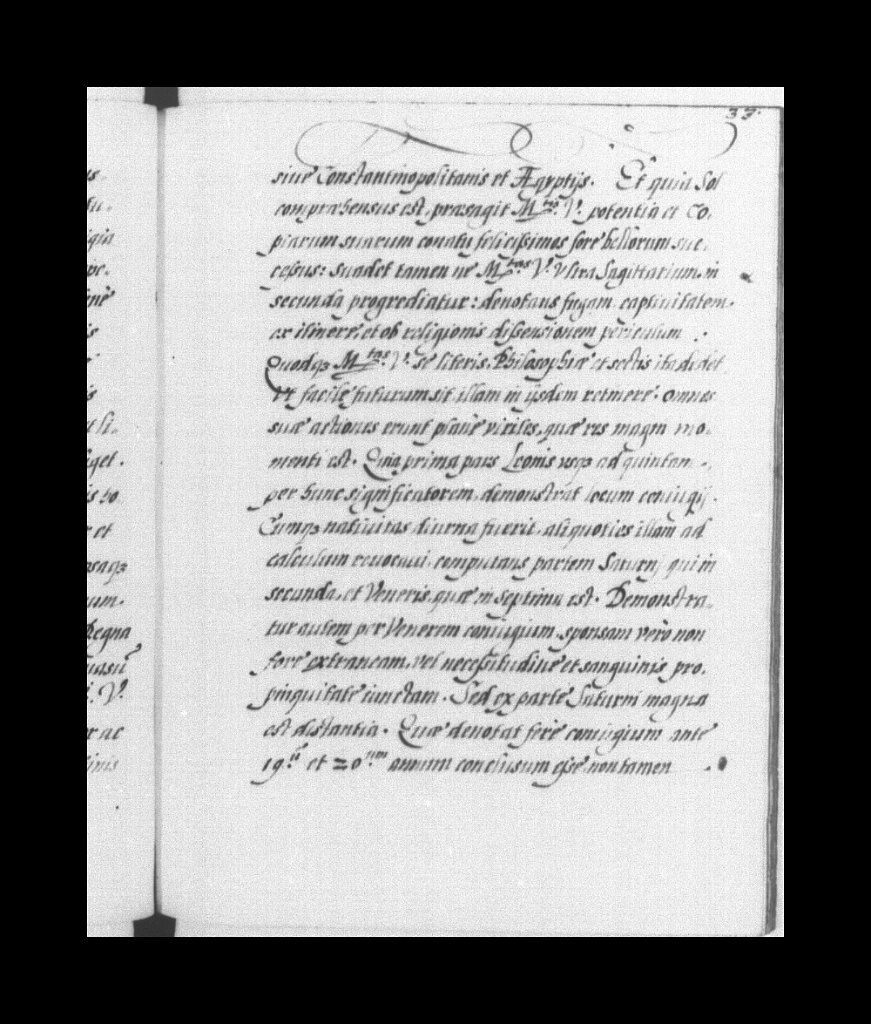 37.
siue Constantinopolitanis et Ægyptijs. Et quia Sol
comprahensus est, præsagit M.tis V. potentia et co,
piarum suarum conatu felicissimos fore bellorum suc,
cessus: suadet tamen ne M.tas V. vltra Sagittarium in
secunda progrediatur: denotans fugam captiuitatem
ex itinere, et ob religionis dissensionem periculum.
Quodq3 M.tas V. se literis, Philosophiæ et sectis ita dedet
vt facile futurum sit illam in ijsdem retinere. omnes
suæ actiones erunt plane viriles, quæ res magni mo,
menti est. Quia prima pars Leonis usq3 ad quintam
per hunc significatorem, demonstrat locum coniugij.
Cumq3 natiuitas diurna fuerit, aliquoties illam ad
calculum reuocaui, computans partem Saturnj qui in
secunda, et Veneris, quæ in septima est. Demonstra,
tur autem per Venerem coniugium, sponsam vero non
fore extraneam, vel necessitudine et sanguinis pro,
pinquitate iunctam. Sed ex parte Saturni magna
est distantia. Quæ denotat fere coniugium ante
19. et 20 annum conclusum esse, non tamen
us.
tu.
gia
pe.
ene
is
is
t li.
iget.
is ho
r et
osaq3
um.
Regna
uasu
V.
r ac
linis